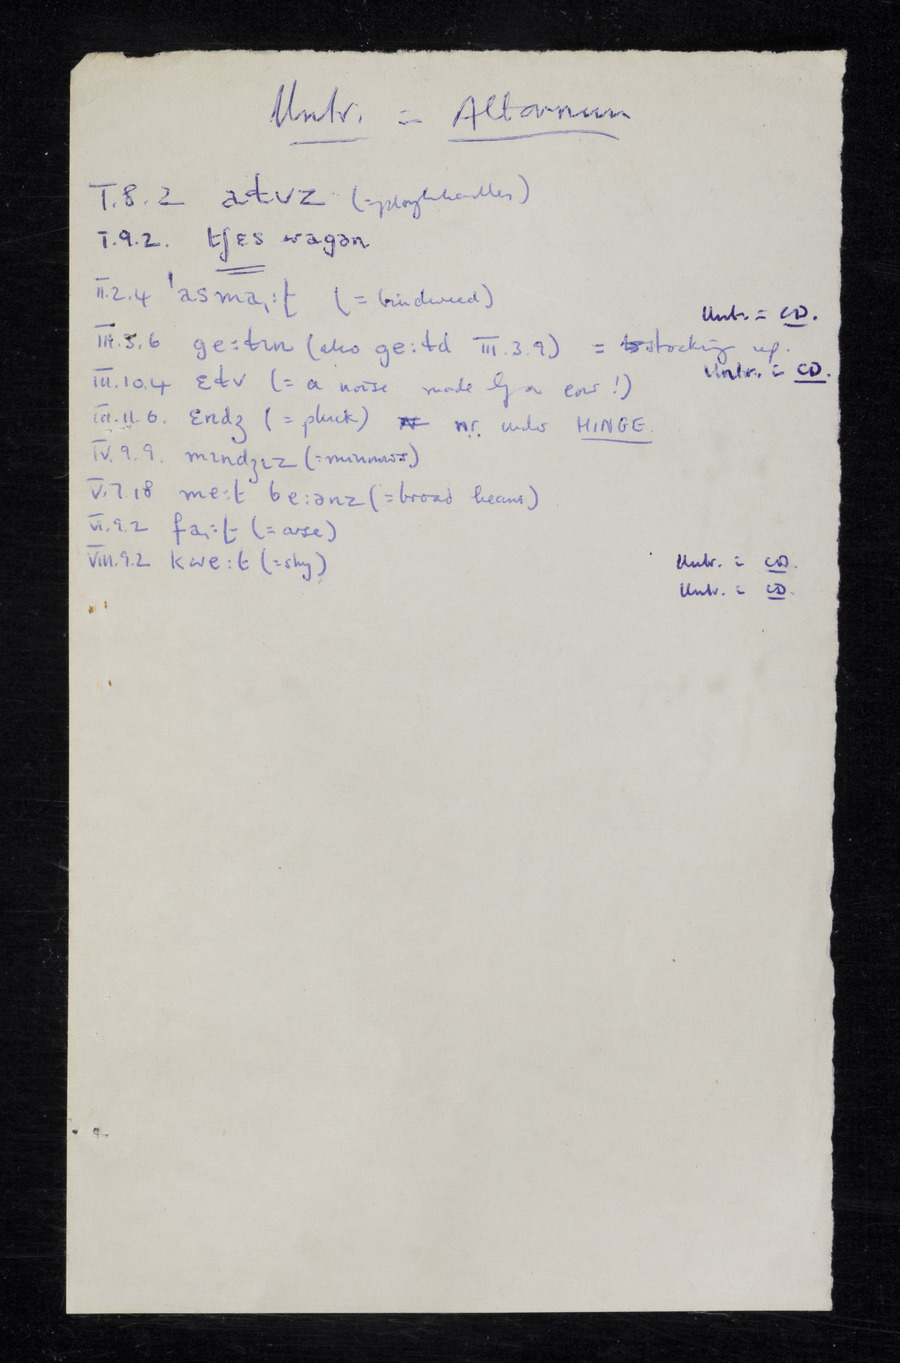 Untr. = Altarnun
I.8.2 atvz (=ploughhandles)
I.9.2. tʃɛs wagən
II.2.4 'asma,:t (= bindweed)
Untr. = CD.
III.3.6 ge:tɪn (also ge:td III.3.9) = stocking up.
Untr. = CD.
III.10.4 ɛtv (= a noise made by a cow!)
III.11.6. ɛndʒ (= pluck) nr. under HINGE.
IV.9.9. mɪndʒɪz (=minnows)
V.7.18 me:t be:anz (=broad beans)
VI.9.2 fa,:t (=arse)
VIII.9.2 kwe:t (=shy)
Untr. = CD.
Untr. = CD.